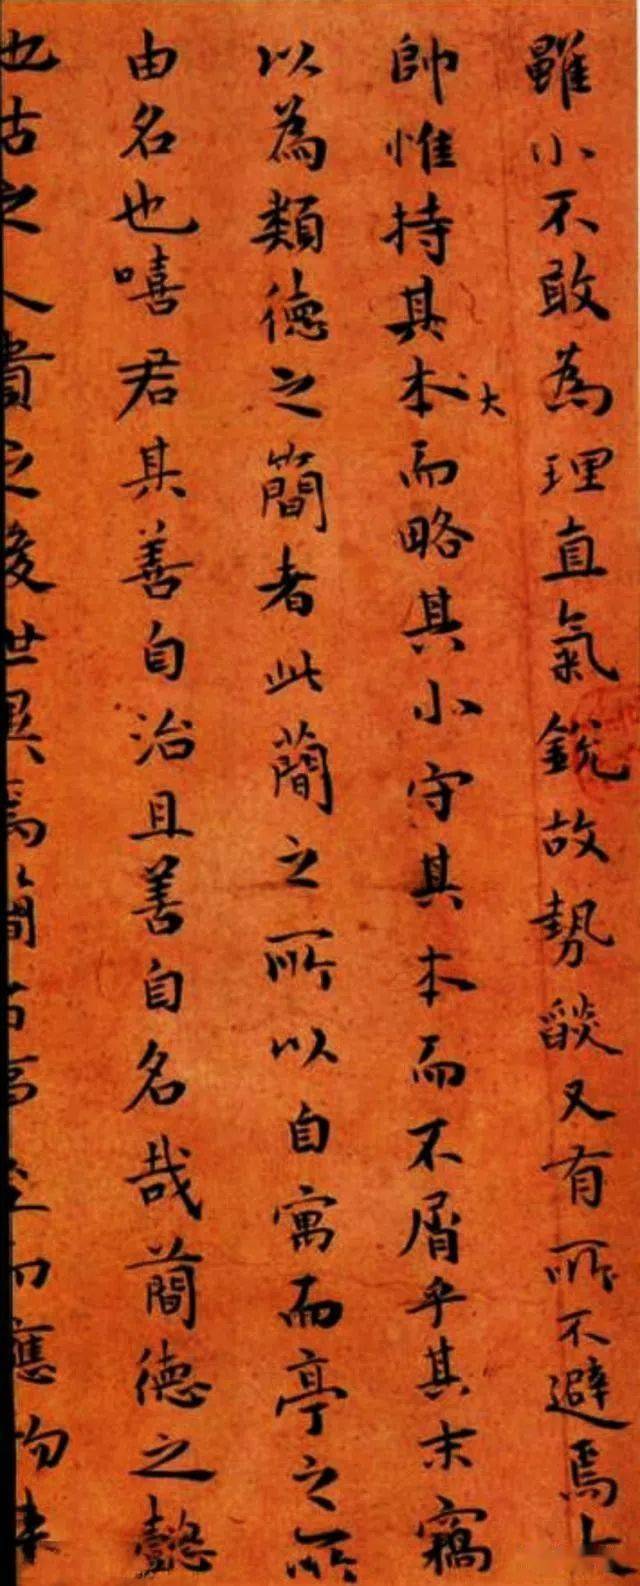 雖小不敢為理直氣銳故勢燄又有所不避焉大
帥惟持其本大而略其小守其本而不屑乎其末竊
以為類德之簡者此蕳之所以自寓而亭之所
由名也嘻君其善自治且善自名哉蕳德之懿
也古之人貴之後世異焉簡應物來